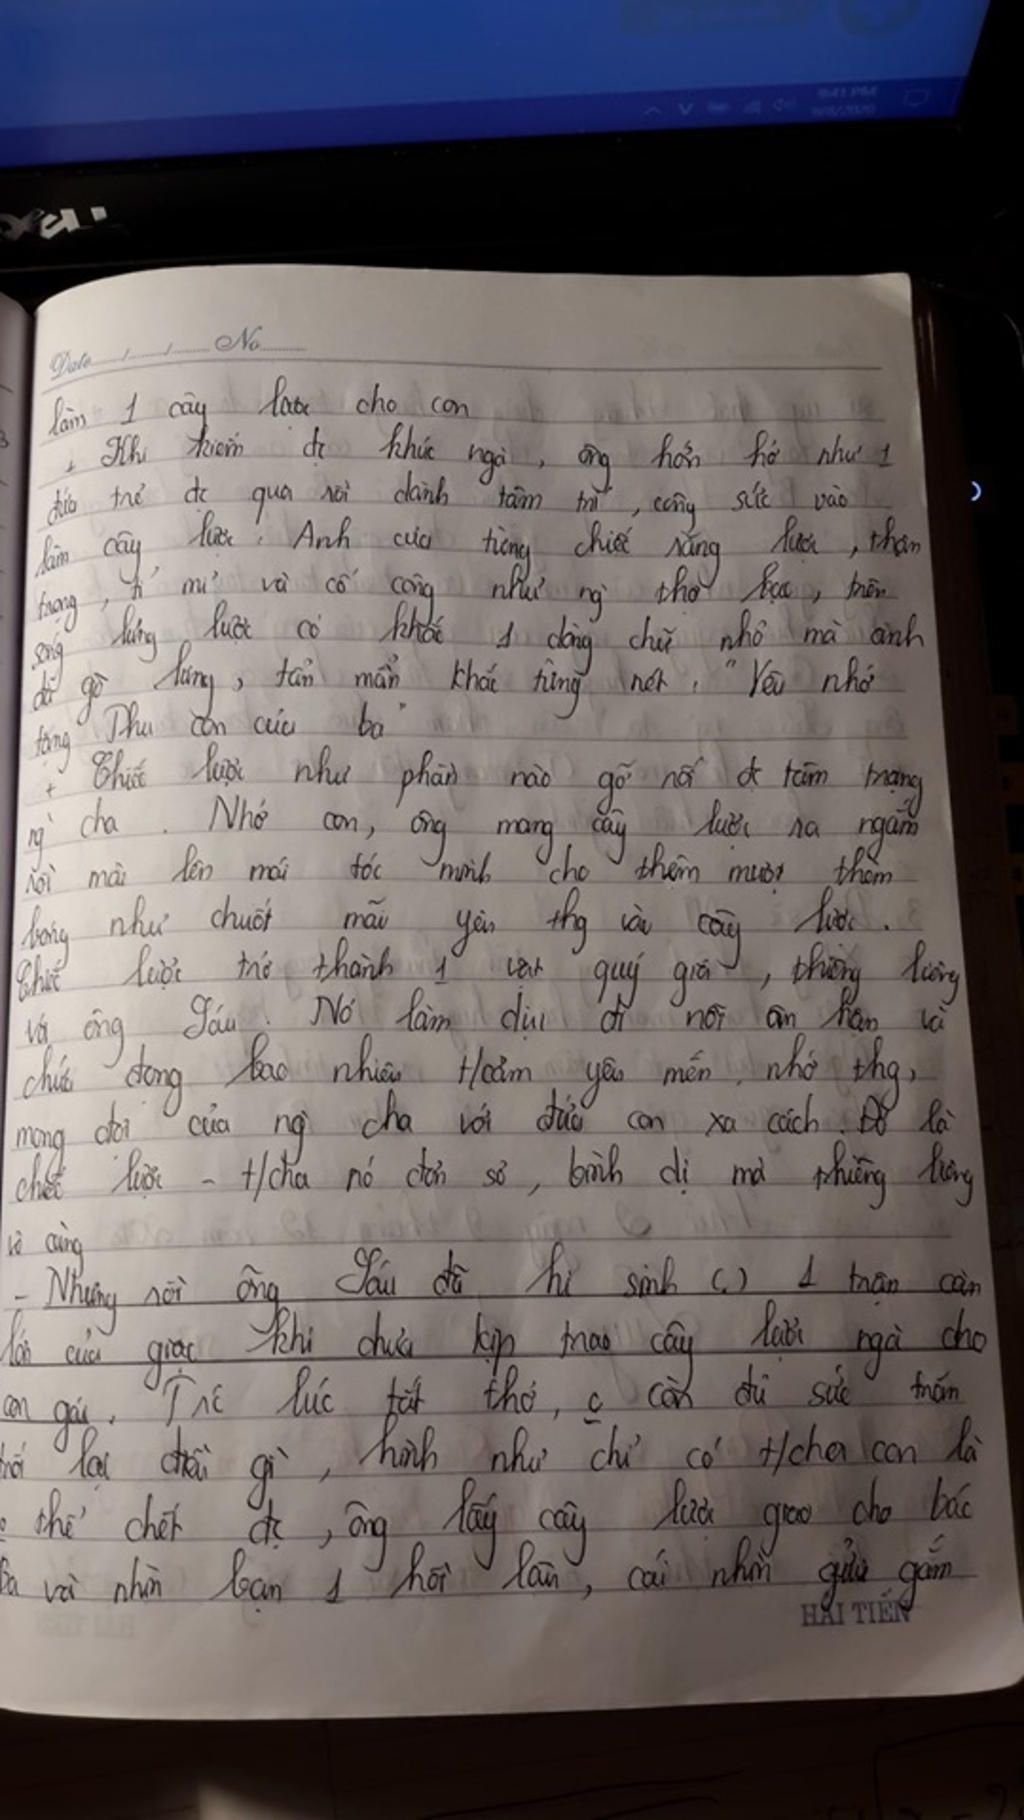 9:41 PM
DELL
Date / / No
làm 1 cây lược cho con
+ Khi kiếm đc khúc ngà, ông hớn hở như 1
đứa trẻ đc quà rồi dành tâm trí, công sức vào
làm cây lược. Anh cưa từng chiếc răng lược, thận
trọng, tỉ mỉ và cố công như ng` thợ bạc, trên
sống lưng lược có khắc 1 dòng chữ nhỏ mà anh
đã gò lưng, tẩn mẩn khắc từng nét. "Yêu nhớ
tặng Thu con của ba"
+ Chiếc lược như phần nào gỡ rối đc tâm trạng
ng` cha. Nhớ con, ông mang cây lược ra ngắm
rồi mài lên mái tóc mình cho thêm mượt thêm
bóng như chuốt mãi yêu thg vào cây lược.
Chiếc lược trở thành 1 vật quý giá, thiêng liêng
với ông Sáu. Nó làm dịu đi nỗi ân hận và
chứa đựng bao nhiêu t/cảm yêu mến, nhớ thg,
mong đợi của ng` cha với đứa con xa cách. Đó là
chiếc lược - t/cha nó đơn sơ, bình dị mà thiêng liêng
vô cùng
- Nhưng rồi ông Sáu đã hi sinh (.) 1 trận càn
lớn của giặc khi chưa kịp trao cây lược ngà cho
con gái. Trc lúc tắt thở, c còn đủ sức trăn
trối lại điều gì, hình như chỉ có t/cha con là
thể chết đc, ông lấy cây lược giao cho bác
Ba và nhìn bạn 1 hồi lâu, cái nhìn gửi gắm
HẢI TIẾN